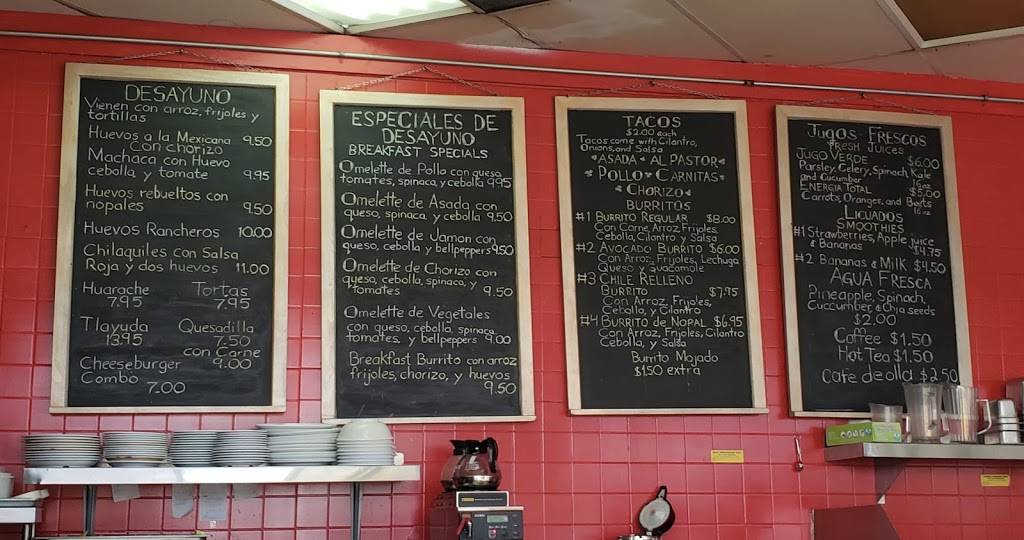 DESAYUNO
Vienen con arroz, frijoles y
tortillas
Huevos a la Mexicana 9.50
con chorizo
Machaca con Huevo
cebolla y tomate 9.95
Huevos rebueltos con
nopales 9.50
Huevos Rancheros 10.00
Chilaquiles con Salsa
Roja y dos huevos 11.00
Huarache Tortas
7.95 7.95
Tlayuda Quesadilla
13.95 7.50
con Carne
Cheeseburger 9.00
Combo
7.00
ESPECIALES DE
DESAYUNO
BREAKFAST SPECIALS
Omelette de Pollo con queso
tomates, spinaca, y cebolla 9.95
Omelette de Asada con
queso, spinaca, y cebolla 9.50
Omelette de Jamon con
queso, cebolla y bellpeppers 9.50
Omelette de Chorizo con
queso, cebolla, spinaca, y
tomates 9.50
Omelette de Vegetales
con queso, cebolla, spinaca
tomates, y bellpeppers 9.00
Breakfast Burrito con arroz
frijoles, chorizo, y huevos
9.50
TACOS
$2.00 each
Tacos come with Cilantro,
Onions, and Salsa
*ASADA * AL PASTOR*
*POLLO * CARNITAS*
* CHORIZO *
BURRITOS
#1 BURRITO REGULAR $8.00
Con Carne, Arroz, Frijoles,
Cebolla, Cilantro y Salsa
#2 AVOCADO BURRITO $6.00
Con Arroz, Frijoles, Lechuga
Queso y Guacamole
#3 CHILE RELLENO
BURRITO $7.95
Con Arroz, Frijoles,
Cebolla, y Cilantro
#4 BURRITO de NOPAL $6.95
Con Arroz, Frijoles, Cilantro
Cebolla, y Salsa
Burrito Mojado
$1.50 extra
Jugos FRESCOS
FRESH JUICES
JUGO VERDE $6.00
Parsley, Celery, Spinach, Kale
and Cucumber 16 oz
ENERGIA TOTAL $5.00
Carrots, Oranges, and Beets
16 oz
LICUADOS
SMOOTHIES
#1 Strawberries, Apple juice
& Bananas $4.75
#2 Bananas & Milk $4.50
AGUA FRESCA
Pineapple, Spinach,
Cuccumber, & Chia seeds
$2.00
Coffee $1.50
Hot Tea $1.50
Cafe de olla $2.50